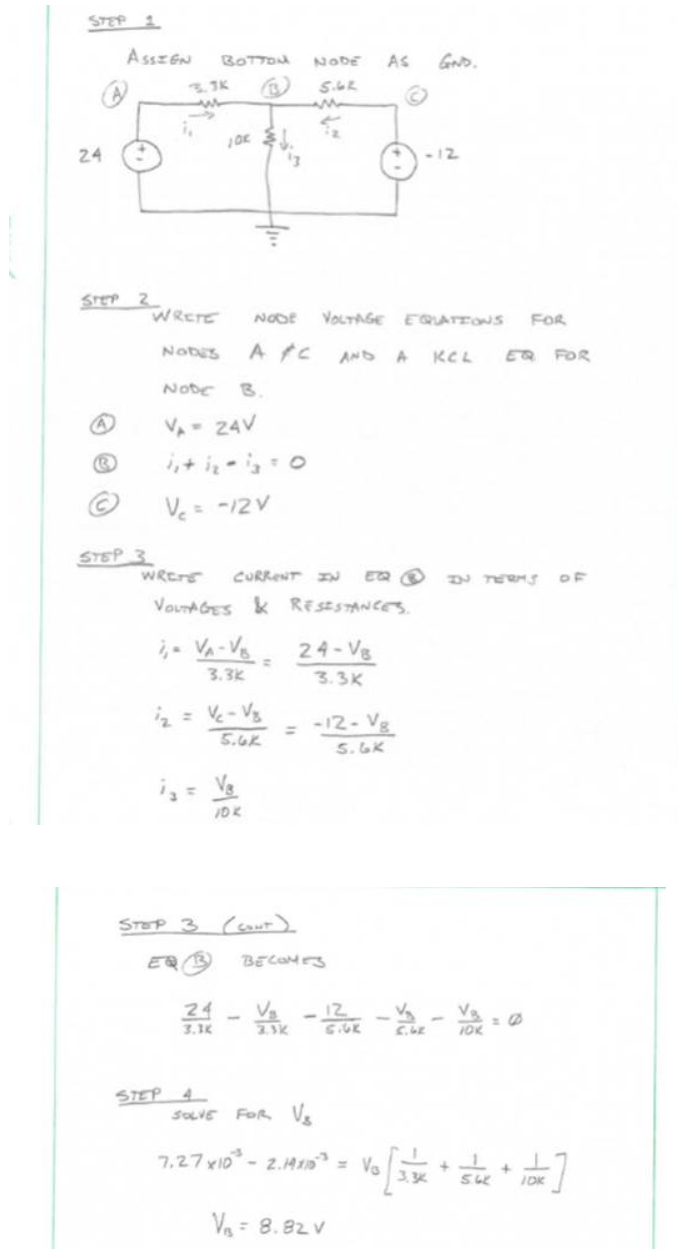 STEP 1
ASSIGN BOTTOM NODE AS GND.
A 3.3K B 5.6K C
i₁ i₂
10K i₃
24 + - + - -12
STEP 2
WRITE NODE VOLTAGE EQUATIONS FOR
NODES A & C AND A KCL EQ FOR
NODE B.
A V_A = 24V
B i₁ + i₂ - i₃ = 0
C V_C = -12V
STEP 3
WRITE CURRENT IN EQ B IN TERMS OF
VOLTAGES & RESISTANCES.
i₁ = (V_A - V_B)/3.3K = (24 - V_B)/3.3K
i₂ = (V_C - V_B)/5.6K = (-12 - V_B)/5.6K
i₃ = V_B/10K
STEP 3 (CONT)
EQ B BECOMES
24/3.3K - V_B/3.3K - 12/5.6K - V_B/5.6K - V_B/10K = 0
STEP 4
SOLVE FOR V_B
7.27 x10⁻³ - 2.14x10⁻³ = V_B [1/3.3K + 1/5.6K + 1/10K]
V_B = 8.82 V